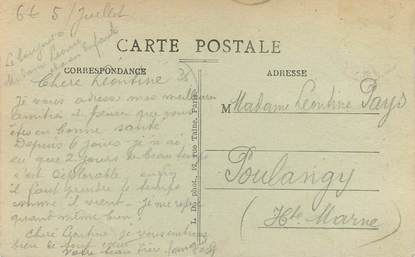 5 Juillet
Le bonjour à
Madame Leonie
CARTE POSTALE
CORRESPONDANCE
ADRESSE
Chère Léontine
Je vous adresse mes meilleures
amitiés et pense que vous
êtes en bonne santé
Depuis 6 jours je n'ai
eu que 2 jours de beau temps
c'est déplorable, enfin
il faut prendre le temps
comme il vient. Je me repose
quand même bien.
Chère Léontine, je vous embrasse
bien de tout cœur
Votre
L. D. phot., 12, rue Taine, Paris
Madame Léontine Pays
Poulangy
(Hte Marne)